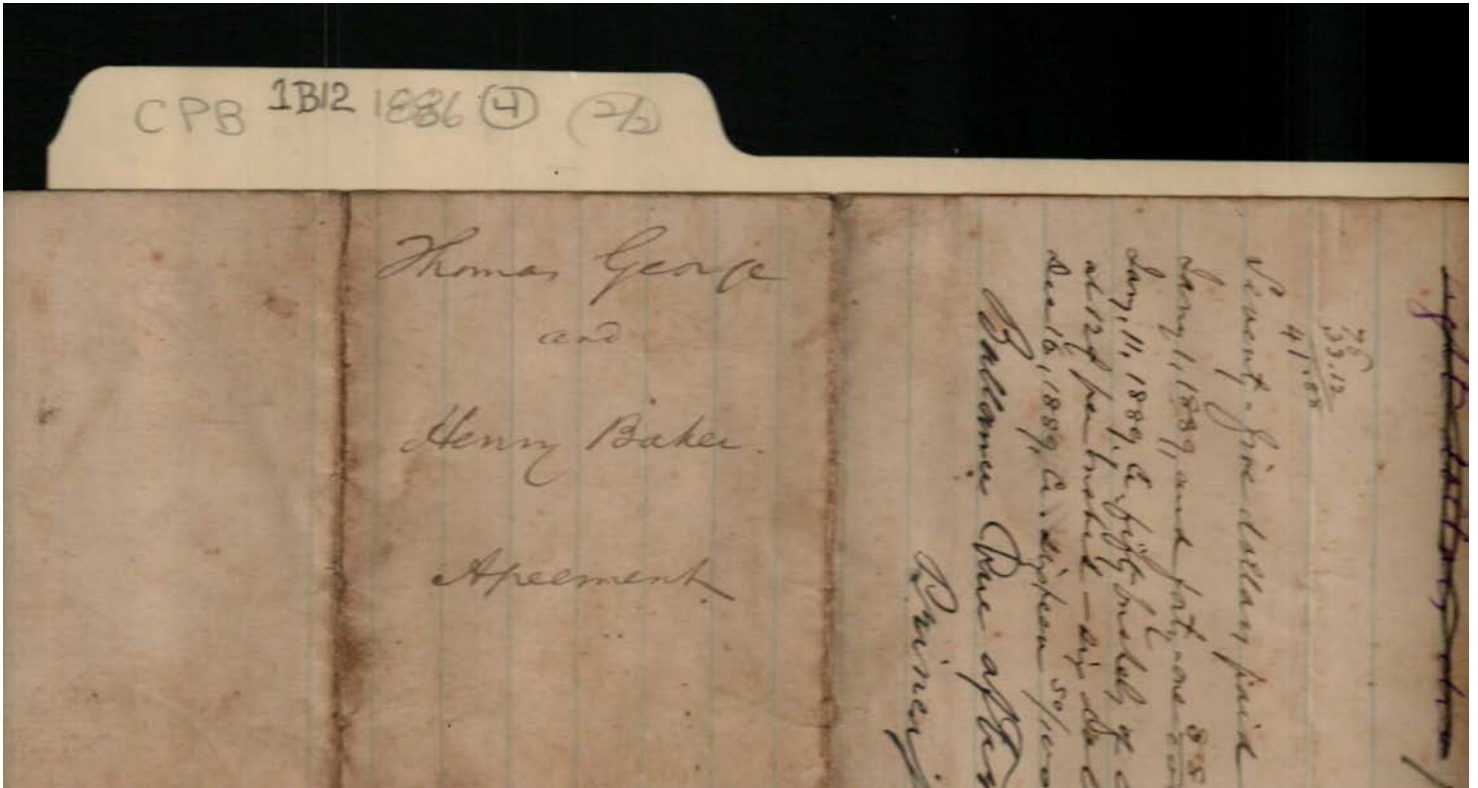 CPB 1B12 1886 (4) (2/2)
Thomas George
and
Henry Baker.
Agreement.
75
33.12
41.88
Seventy-five dollars paid
Jany, 1, 1889, and forty-one 88
Jany, 11, 1889, fifty bushels of
at 12¢ per bushel - six
Dec 16, 1889, sixteen 50/100
Ballance Due after